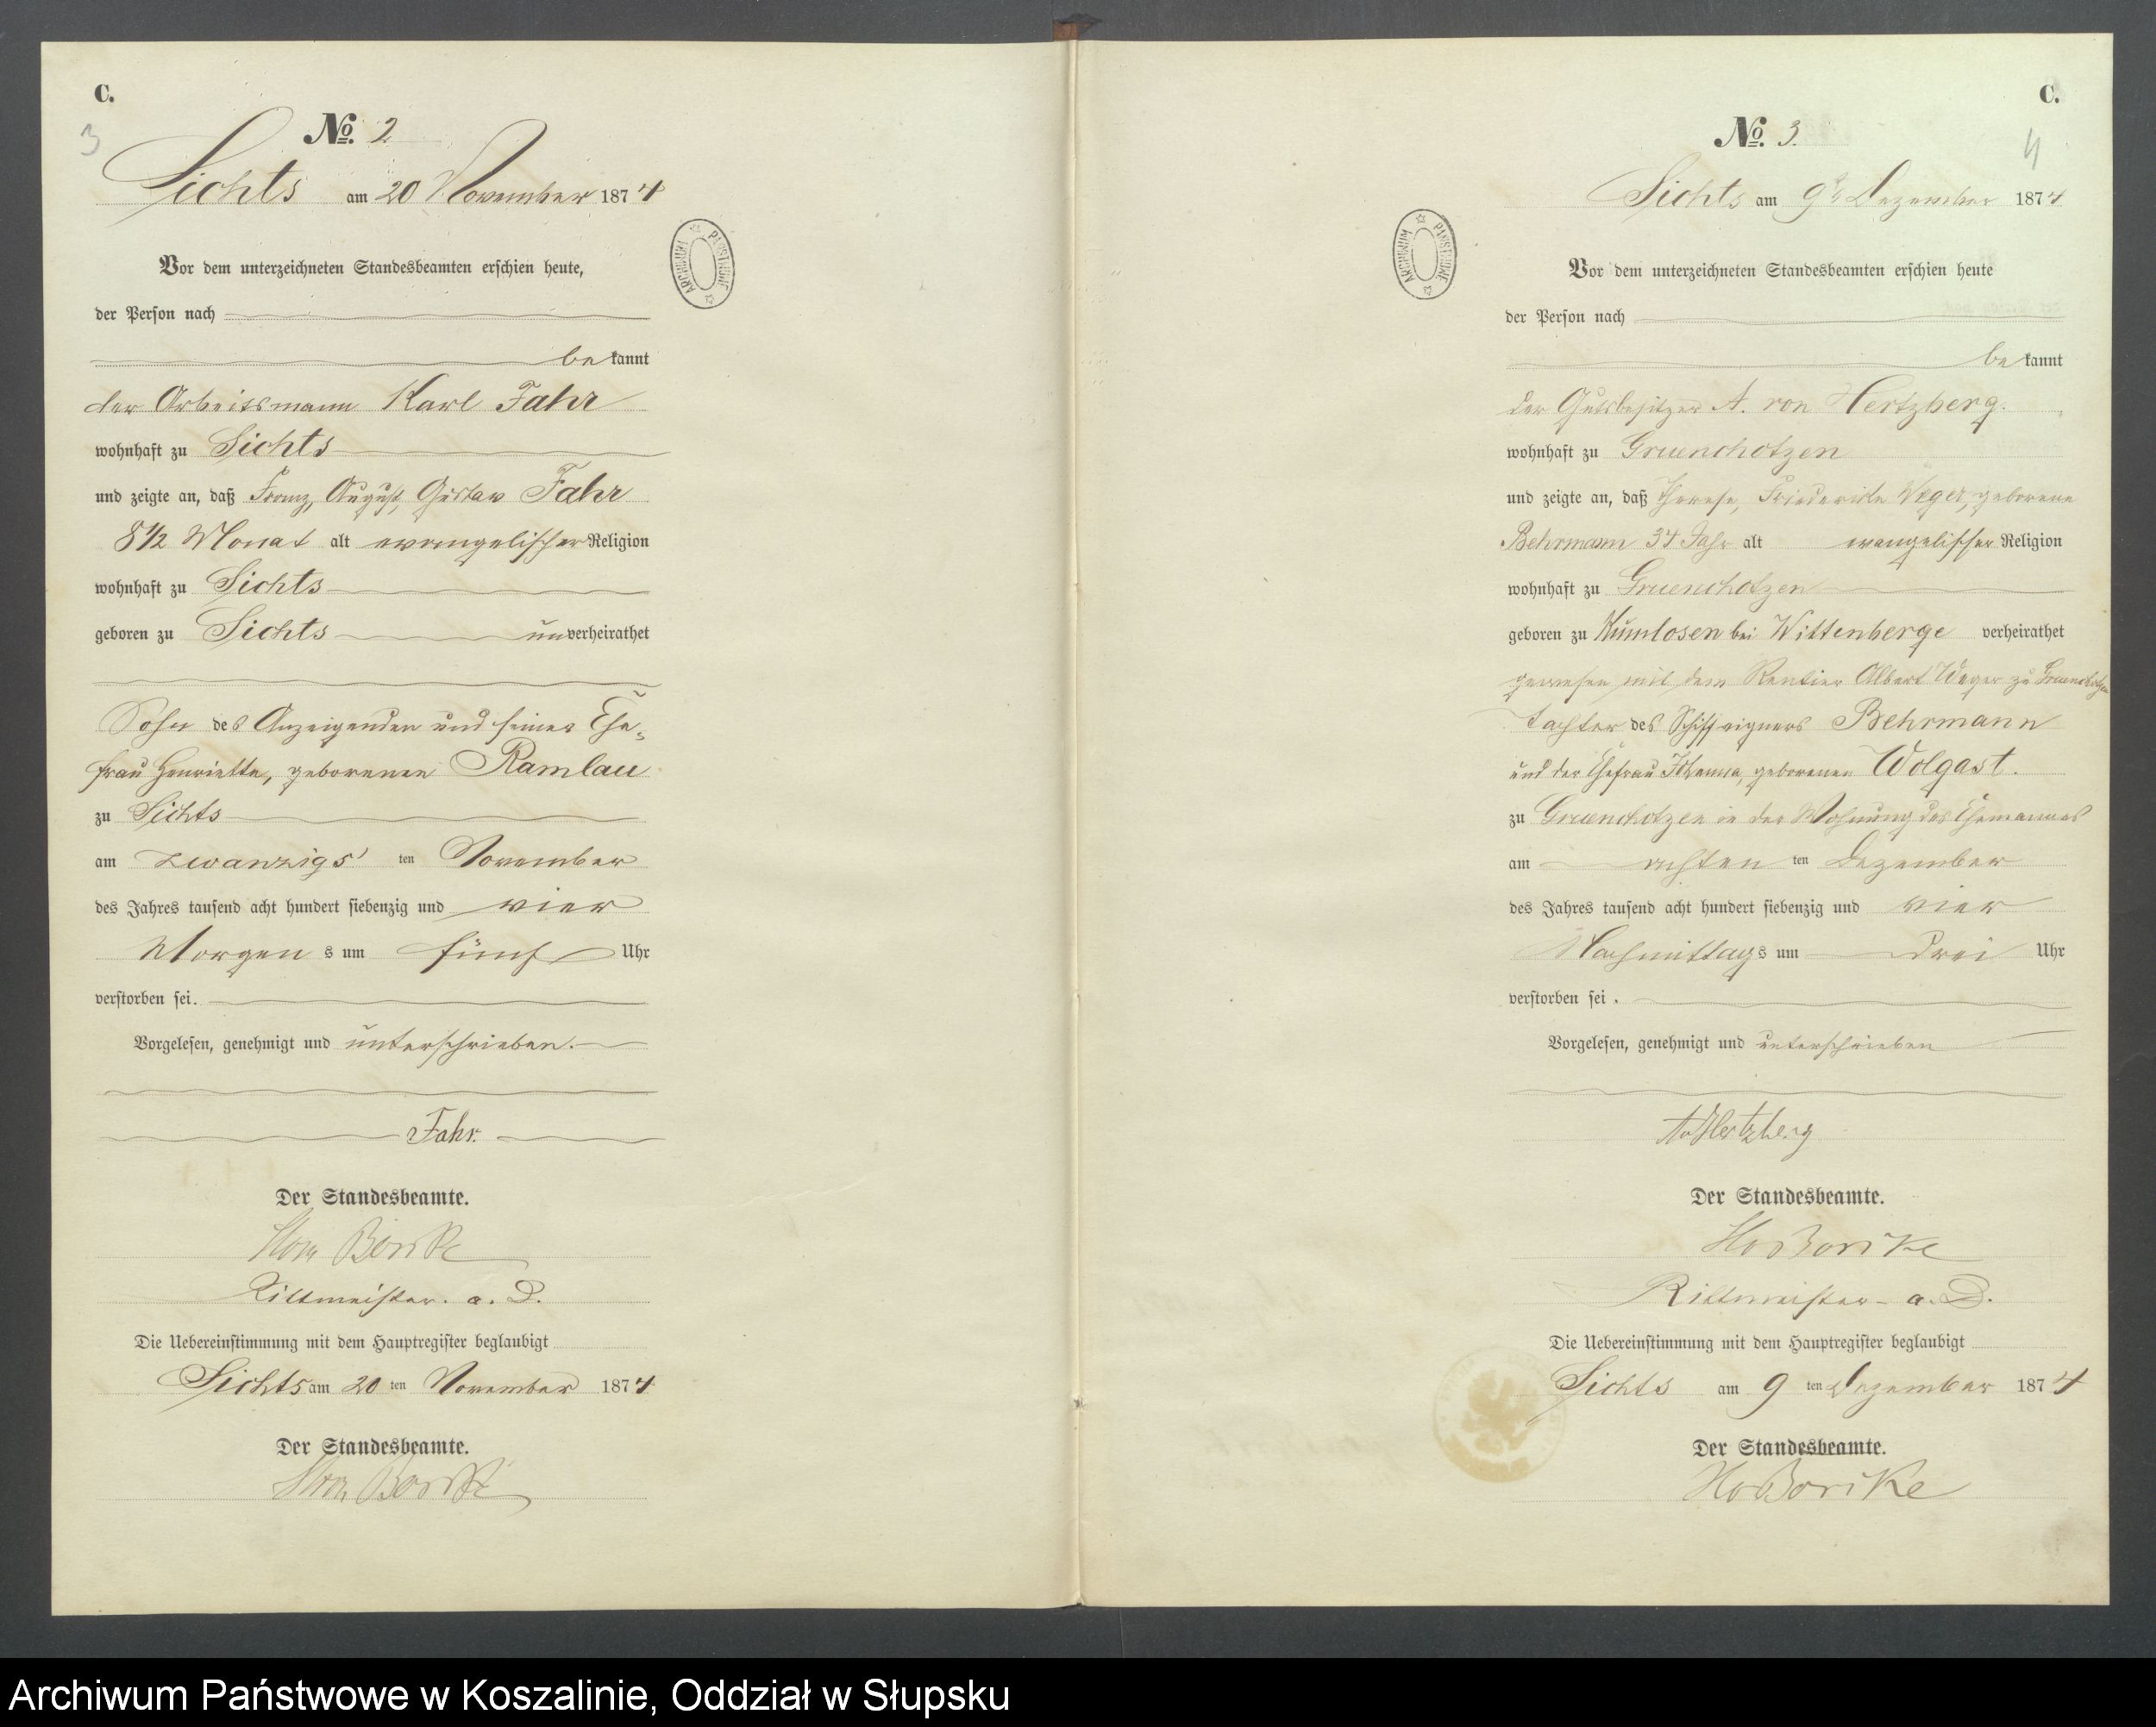 C.
3
No. 2
Sichts am 20 November 1874
ARCHIWUM PAŃSTWOWE
Vor dem unterzeichneten Standesbeamten erschien heute,
der Person nach
bekannt
der Arbeitsmann Karl Fahr
wohnhaft zu Sichts
und zeigte an, daß Franz, August, Gustav Fahr
8 1/2 Monat alt evangelischer Religion
wohnhaft zu Sichts
geboren zu Sichts unverheirathet
Sohn des Anzeigenden und seiner Ehe-
frau Henriette, geborenen Ramlau
zu Sichts
am zwanzigsten November
des Jahres tausend acht hundert siebenzig und vier
Morgens um fünf Uhr
verstorben sei.
Vorgelesen, genehmigt und unterschrieben.
Fahr.
Der Standesbeamte.
Rittmeister. a. D.
Die Uebereinstimmung mit dem Hauptregister beglaubigt
Sichts am 20 ten November 1874
Der Standesbeamte.
C.
4
No. 3.
Sichts am 9 Dezember 1874
ARCHIWUM PAŃSTWOWE
Vor dem unterzeichneten Standesbeamten erschien heute
der Person nach
bekannt
der Gutsbesitzer A. von Hertzberg.
wohnhaft zu Gruenchotzen
und zeigte an, daß Therese, Friederike Weger, geborene
Behrmann 34 Jahr alt evangelischer Religion
wohnhaft zu Gruenchotzen
geboren zu Kumlosen bei Wittenberge verheirathet
gewesen mit dem Rentier Albert Weger zu Gruenchotzen
Tochter des Schiffeigners Behrmann
und der Ehefrau Johanna, geborenen Wolgast.
zu Gruenchotzen in der Wohnung des Ehemannes
am achten ten Dezember
des Jahres tausend acht hundert siebenzig und vier
Nachmittags um drei Uhr
verstorben sei.
Vorgelesen, genehmigt und unterschrieben
AvHertzberg
Der Standesbeamte.
Rittmeister a. D.
Die Uebereinstimmung mit dem Hauptregister beglaubigt
Sichts am 9 ten Dezember 1874
Der Standesbeamte.
Archiwum Państwowe w Koszalinie, Oddział w Słupsku